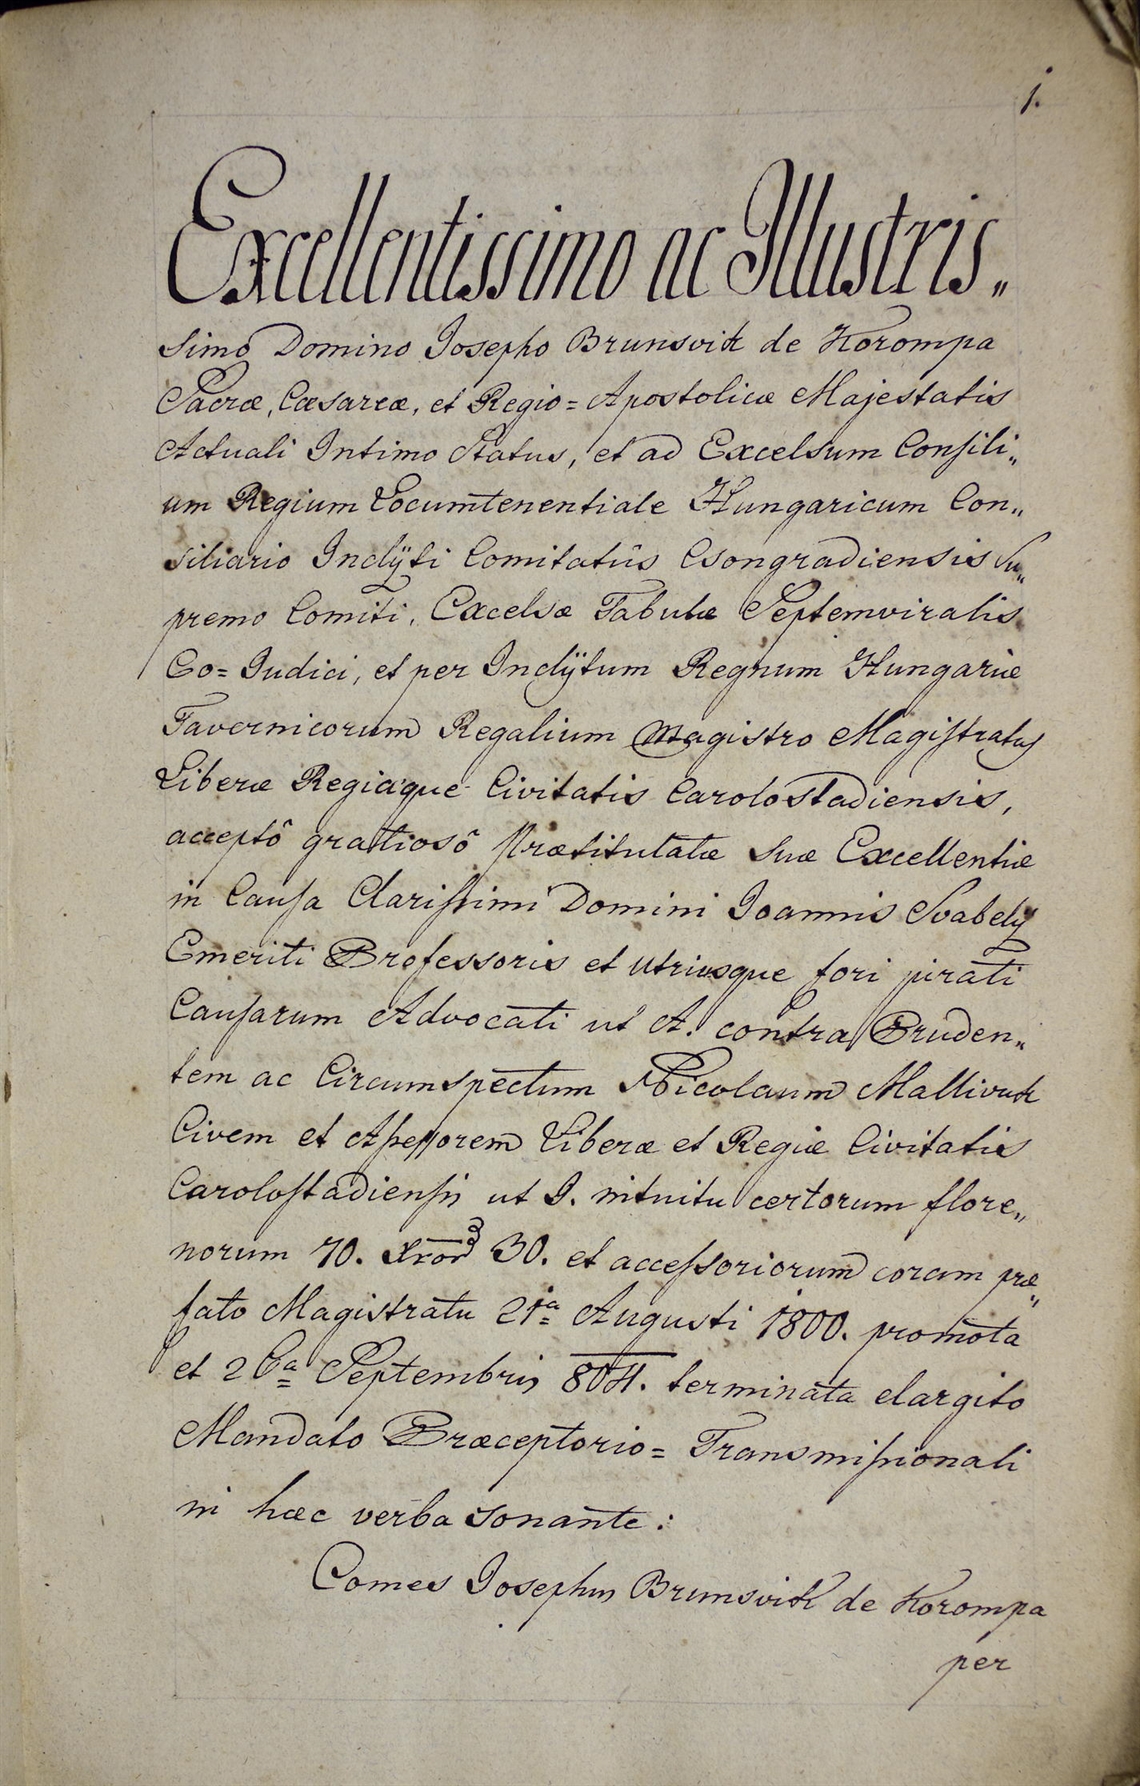 1.
Excellentissimo ac Illustris„
simo Domino Josepho Brunsvik de Korompa
Sacræ, Cæsareæ, et Regio= Apostolicæ Majestatis
Actuali Intimo Status, et ad Excelsum Consili„
um Regium Locumtenentiale Hungaricum Con„
siliario Inclÿti Comitatûs Csongradiensis Su„
premo Comiti, Excelsæ Tabulæ Septemviralis
Co= Judici, et per Inclÿtum Regnum Hungariæ
Tavernicorum Regalium Magistro Magistratus
Liberæ Regiæque Civitatis Carolostadiensis,
acceptô gratiosô Prætitulatæ Suæ Excellentiæ
in Causa Clarissimi Domini Joannis Svabely
Emeriti Professoris et utriusque fori jurati
Causarum Advocati ut A. contra Pruden„
tem ac Circumspectum Nicolaum Mallivuk
Civem et Assessorem Liberæ et Regiæ Civitatis
Carolostadiensis ut I. intuitu certorum flore„
norum 70. Xror 30. et accessoriorum coram præ„
fato Magistratu 21a Augusti 1800. promota
et 26a Septembris 804. terminata elargito
Mandato Præceptorio= Transmissionali
in hæc verba sonante:
Comes Josephus Brunsvik de Korompa
per